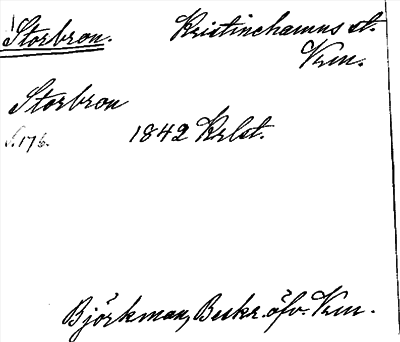 Storbron. Kristinehamns st.
Vrm.
Storbron
S. 176. 1842 Krlst.
Björkman, Beskr. öfv. Vrm.